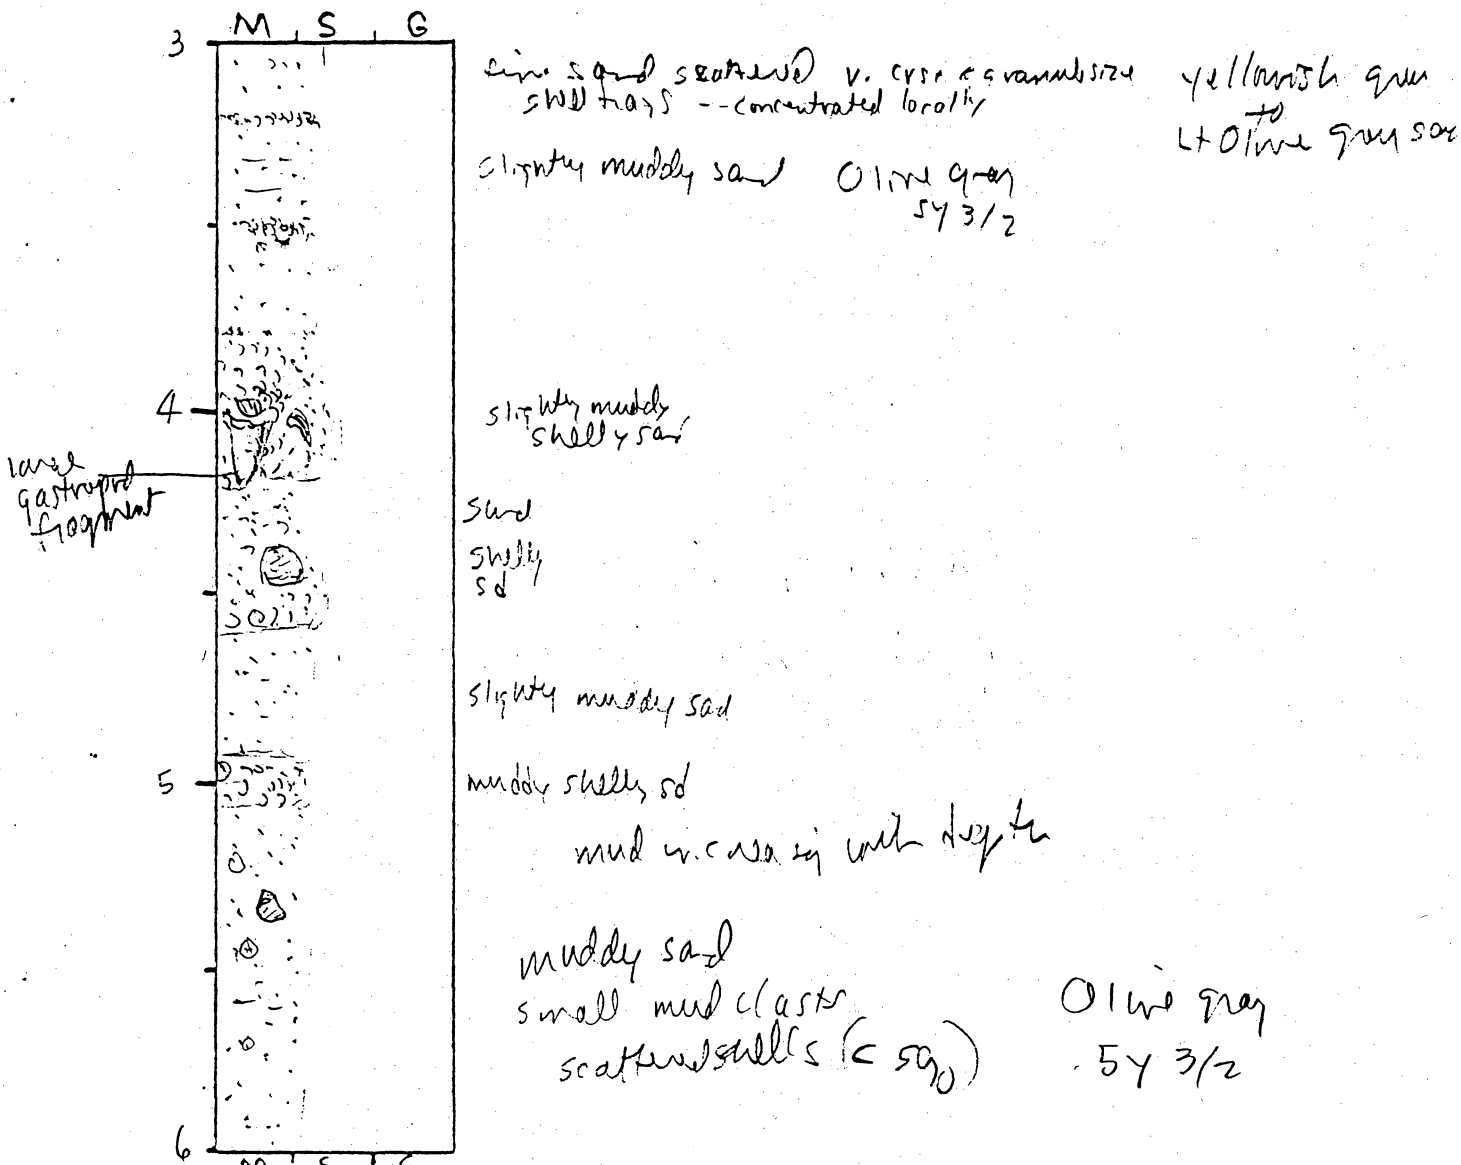 M S G
3
fine sand scattered v. crse granule size
shell frags -- concentrated locally
yellowish gray
to
Lt Olive gray
slightly muddy sand Olive gray
5Y 3/2
4
slightly muddy
shelly sand
large
gastropod
fragment
sand
shelly
sd
slighty muddy sand
5
muddy shelly sd
mud increasing with depth
muddy sand
small mud clasts
scattered shells (< 5%)
Olive gray
5Y 3/2
6
M S G